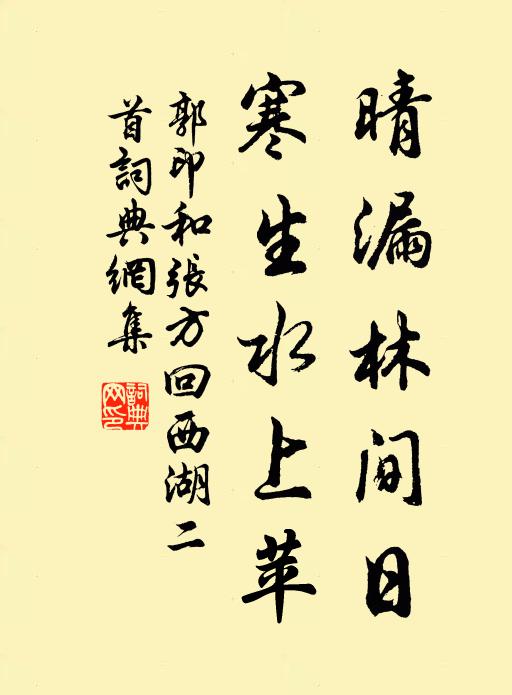 晴漏林间日
寒生水上苹
郭印和張方回西湖二
首詞典網集
詞典
网印